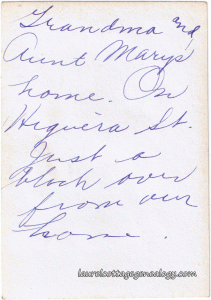 Grandma and
Aunt Marys
home. On
Higuera St.
Just a
block over
from our
home.
laurelcottagegenealogy.com